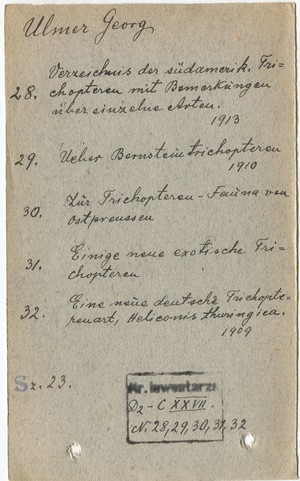 Ulmer Georg
Verzeichnis der südamerik. Tri-
28. chopteren mit Bemerkungen
über einzelne Arten.
1913
29. Ueber Bernsteintrichopteren
1910
Zur Trichopteren-Fauna von
30. Ostpreussen
Einige neue exotische Tri-
31. chopteren
Eine neue deutsche Trichopte-
32. renart, Heliconis thuringica.
1909
Sz. 23.
Nr. inwentarz.
D2-C XXVII.
N. 28, 29, 30, 31, 32